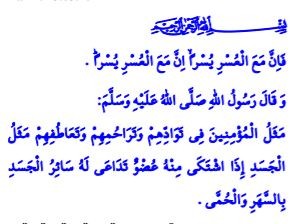 بِسْمِ اللهِ الرَّحْمٰنِ الرَّحِيمِ
فَاِنَّ مَعَ الْعُسْرِ يُسْراًۙ اِنَّ مَعَ الْعُسْرِ يُسْراًؕ .
وَ قَالَ رَسُولُ اللّٰهِ صَلَّى اللّٰهُ عَلَيْهِ وَسَلَّمَ:
مَثَلُ الْمُؤْمِنِينَ فِى تَوَادِّهِمْ وَتَرَاحُمِهِمْ وَتَعَاطُفِهِمْ مَثَلُ
الْجَسَدِ إِذَا اشْتَكَى مِنْهُ عُضْوٌ تَدَاعَى لَهُ سَائِرُ الْجَسَدِ
بِالسَّهَرِ وَالْحُمَّى .